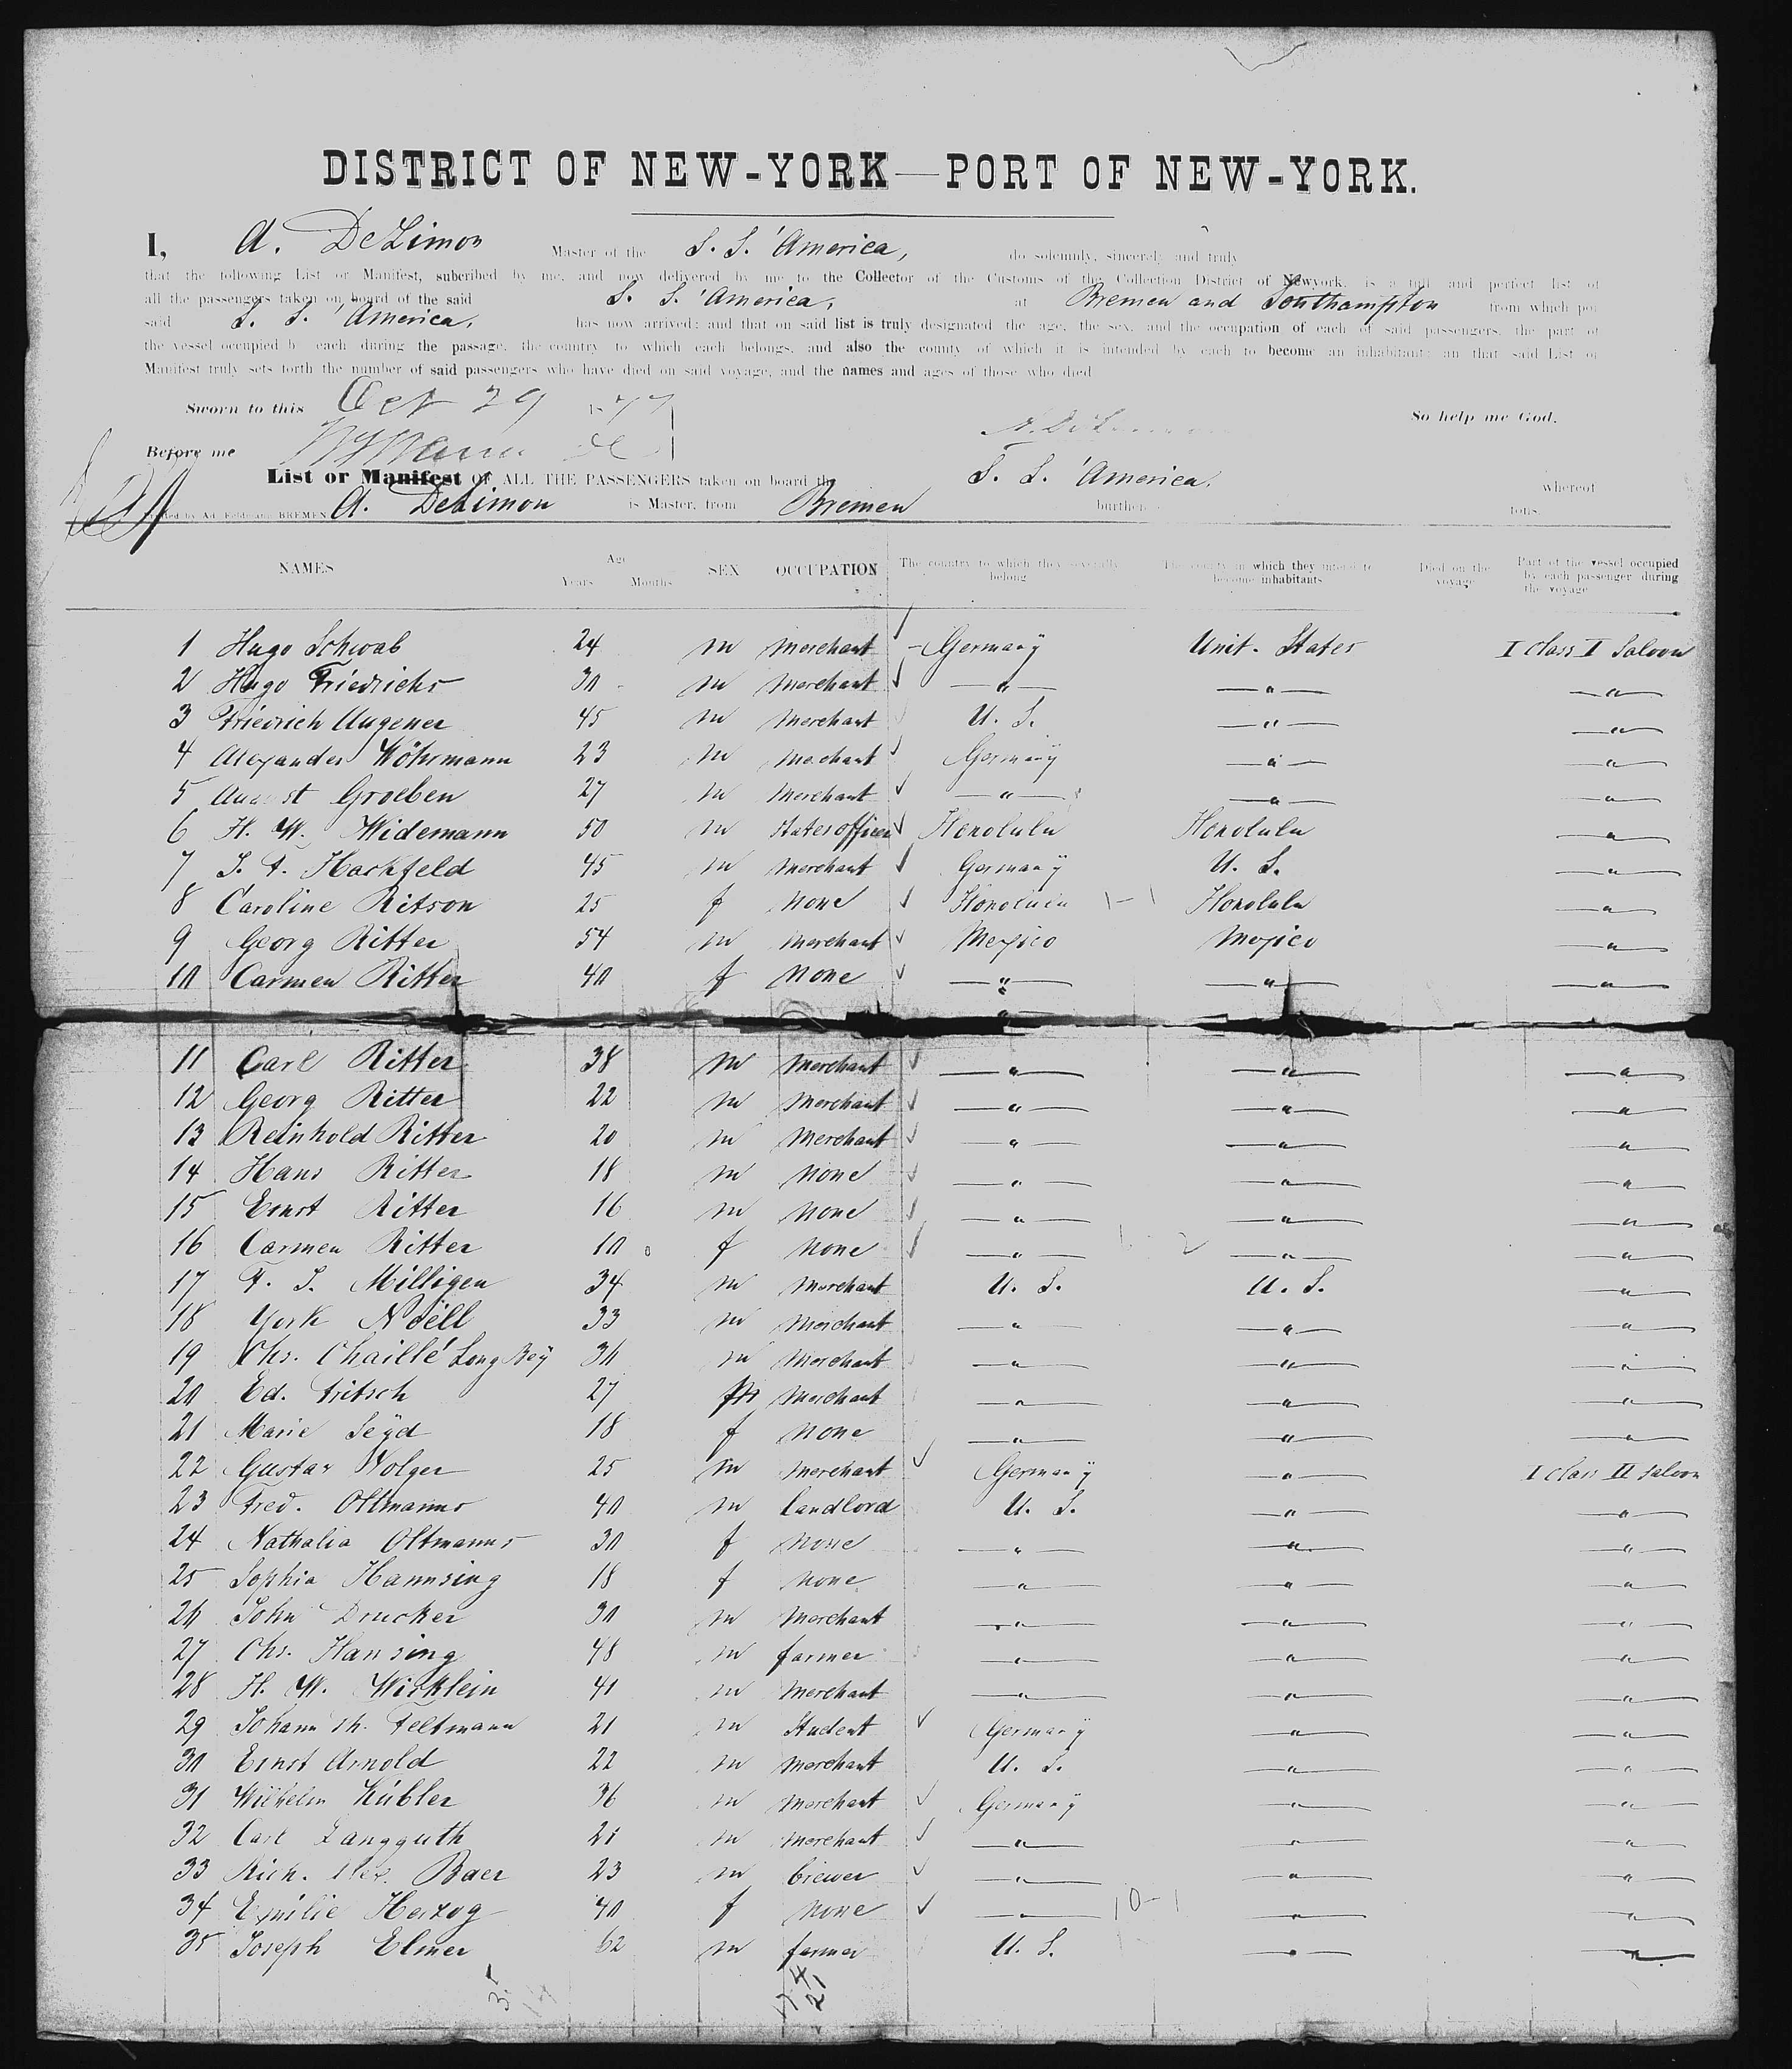 DISTRICT OF NEW-YORK—PORT OF NEW-YORK.
I, A. DeLimon Master of the S. S. 'America, do solemnly, sincerely and truly
that the following List or Manifest, subcribed by me, and now delivered by me to the Collector of the Customs of the Collection District of Newyork, is a full and perfect list of
all the passengers taken on board of the said S. S. 'America, at Bremen and Southampton from which por
said S. S. 'America, has now arrived; and that on said list is truly designated the age, the sex, and the occupation of each of said passengers, the part of
the vessel occupied b each during the passage, the country to which each belongs, and also the county of which it is intended by each to become an inhabitant; an that said List or
Manifest truly sets forth the number of said passengers who have died on said voyage, and the names and ages of those who died
Sworn to this Oct 29 1877 So help me God.
Before me
List or Manifest OF ALL THE PASSENGERS taken on board the S. S. 'America. whereof
BREMEN A. DeLimon is Master, from Bremen burthen tons.
NAMES Age Years Months SEX OCCUPATION The country to which they severally belong The county in which they intend to become inhabitants Died on the voyage Part of the vessel occupied by each passenger during the voyage
1 Hugo Schwab 24 m Merchant Germany Unit. States I class I Saloon
2 Hugo Friedrichs 30 m Merchant — " — — " — — " —
3 Friedrich Augener 45 m Merchant U. S. — " — — " —
4 Alexander Wöhrmann 23 m Merchant Germany — " — — " —
5 August Groeben 27 m Merchant — " — — " — — " —
6 H. W. Widemann 50 m States officer Honolulu Honolulu — " —
7 J. F. Hackfeld 45 m Merchant Germany U. S. — " —
8 Caroline Ritson 25 f None Honolulu 1-1 Honolulu — " —
9 Georg Ritter 54 m Merchant Mexico Mexico — " —
10 Carmen Ritter 40 f None — " — — " — — " —
11 Carl Ritter 38 m Merchant — " — — " — — " —
12 Georg Ritter 22 m Merchant — " — — " — — " —
13 Reinhold Ritter 20 m Merchant — " — — " — — " —
14 Hans Ritter 18 m None — " — — " — — " —
15 Ernst Ritter 16 m None — " — — " — — " —
16 Carmen Ritter 10 f None — " — 1-2 — " — — " —
17 F. S. Milligen 34 m Merchant U. S. U. S. — " —
18 York Noëll 33 m Merchant — " — — " — — " —
19 Chs. Chaillé Long Bey 30 m Merchant — " — — " — — " —
20 Ed. Fritsch 27 m Merchant — " — — " — — " —
21 Marie Seyd 18 f None — " — — " — — " —
22 Gustav Wolger 25 m Merchant Germany — " — I class II Saloon
23 Fred. Oltmanns 40 m Landlord U. S. — " — — " —
24 Nathalia Oltmanns 30 f None — " — — " — — " —
25 Sophia Hannsing 18 f None — " — — " — — " —
26 John Drucker 30 m Merchant — " — — " — — " —
27 Chs. Hansing 48 m farmer — " — — " — — " —
28 H. W. Wicklein 41 m Merchant — " — — " — — " —
29 Johann Th. Feltmann 21 m Student Germany — " — — " —
30 Ernst Arnold 22 m Merchant U. S. — " — — " —
31 Wilhelm Kübler 36 m Merchant Germany — " — — " —
32 Carl Langguth 21 m Merchant — " — — " — — " —
33 Rich. Alex. Baer 23 m brewer — " — — " — — " —
34 Emilie Herzog 40 f None — " — 10-1 — " — — " —
35 Joseph Elmer 62 m farmer U. S. — " — — " —
35 14